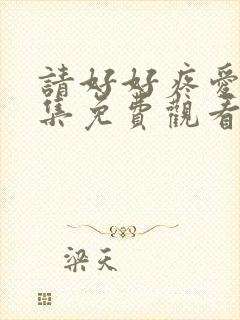 請好好疼愛
集免費觀看
梁天